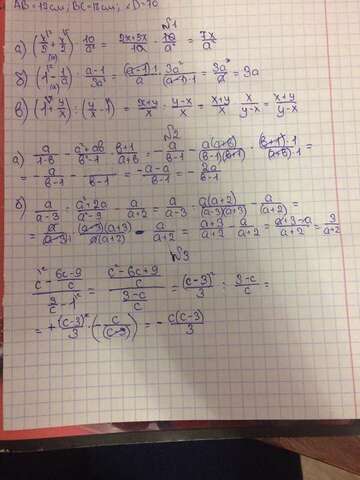 AB = 12см; BC=18см; ∠D=70
№1
а) (x/5 + x/2) · 10/a² = 2x+5x/10 · 10/a² = 7x/a²
б) (1 - 1/a) : a-1/3a² = (a-1)·1/a · 3a²/(a-1)·1 = 3a²/a = 3a
в) (1 + y/x) : (y/x - 1) = x+y/x : y-x/x = x+y/x · x/y-x = x+y/y-x
№2
а) a/1-b - a²+ab/b²-1 · b+1/a+b = - a/b-1 - a(a+b)/(b-1)(b+1) · (b+1)·1/(a+b)·1 =
= - a/b-1 - a/b-1 = -a-a/b-1 = - 2a/b-1
б) a/a-3 : a²+2a/a²-9 - a/a+2 = a/a-3 : a(a+2)/(a-3)(a+3) - a/(a+2) =
= a/(a-3) · (a-3)(a+3)/a(a+2) - a/a+2 = a+3/a+2 - a/a+2 = a+3-a/a+2 = 3/a+2
№3
c - 6c-9/c / 3/c - 1 = c²-6c+9/c / 3-c/c = (c-3)²/3 : 3-c/c =
= + (c-3)²/3 · (- c/(c-3)) = - c(c-3)/3